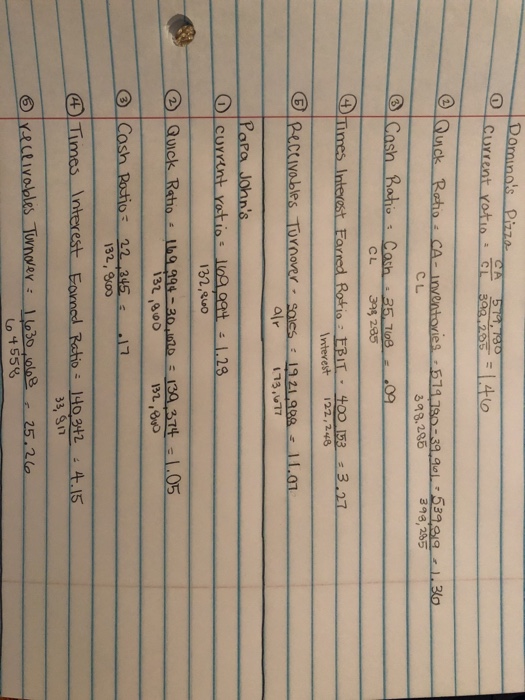 Domino's Pizza
① Current ratio = CA/CL 579,780/398,285 = 1.46
② Quick Ratio = CA - inventories/CL = 579,780 - 39,961/398,285 = 539,819/398,285 = 1.36
③ Cash Ratio = Cash/CL = 35,768/398,285 = .09
④ Times Interest Earned Ratio = EBIT/Interest = 400,153/122,248 = 3.27
⑤ Receivables Turnover = sales/a/r = 1921,988/173,677 = 11.07
Papa John's
① current ratio = 169,994/132,800 = 1.28
② Quick Ratio = 169,994 - 30,620/132,800 = 139,374/132,800 = 1.05
③ Cash Ratio = 22,345/132,800 = .17
④ Times Interest Earned Ratio = 140,342/33,817 = 4.15
⑤ receivables Turnover = 1,630,668/64558 = 25.26